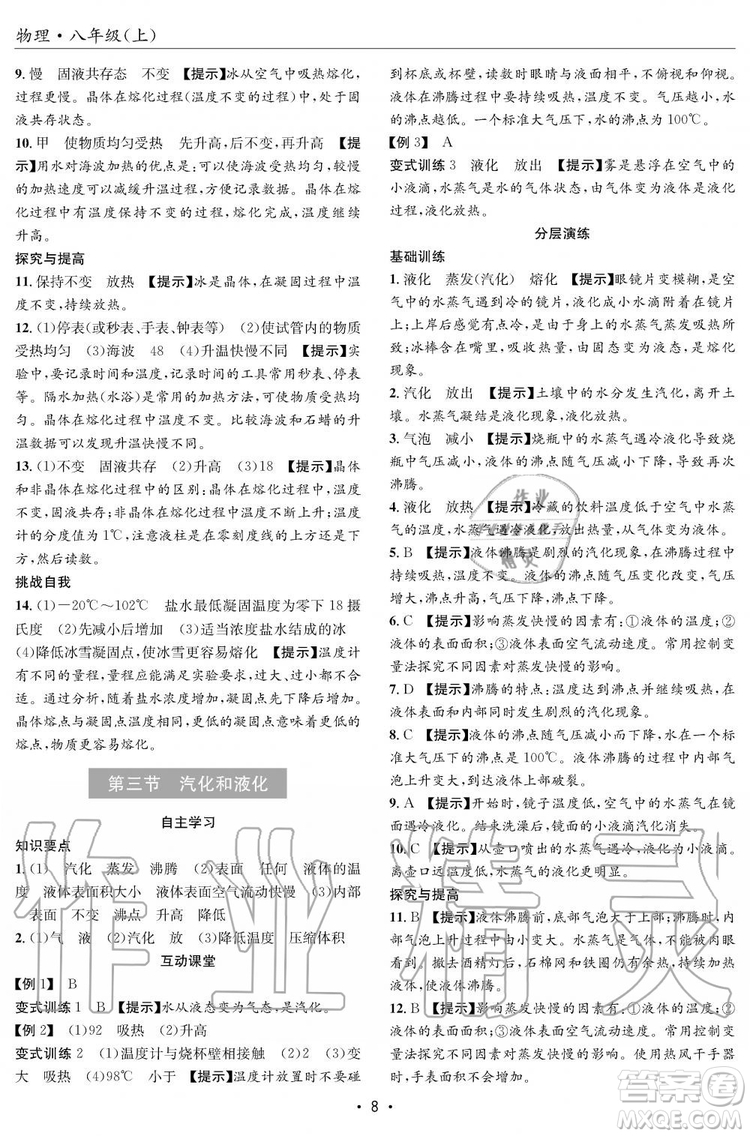 物理·八年级(上)
9. 慢　固液共存态　不变　【提示】冰从空气中吸热熔化，
过程更慢。晶体在熔化过程(温度不变的过程)中，处于固
液共存状态。
10. 甲　使物质均匀受热　先升高，后不变，再升高　【提
示】用水对海波加热的优点是：可以均匀受热，较慢
的加热速度可以减缓升温过程，方便记录。晶体在熔
化过程中有温度保持不变的过程，熔化完成，温度继续
升高。
探究与提高
11. 保持不变　放热　【提示】冰是晶体，在凝固过程中温
度不变，持续放热。
12. (1)停表(或秒表、手表、钟表等)　(2)使试管内的物质
受热均匀　(3)海波　48　(4)升温快慢不同　【提示】实
验中，要记录时间和温度，记录时间的工具常用秒表、停表
等。隔水加热(水浴)是常用的加热方法，可使受热均
匀。晶体在熔化过程中温度不变。比较海波和石蜡的升
温数据可发现升温快慢不同。
13. (1)不变　固液共存　(2)升高　(3)18　【提示】晶体
和非晶体在熔化过程中的区别：晶体在熔化过程中，温
度不变，固液共存；非晶体熔化过程中，温度升高。温度
计的分度值为1℃，注意液柱是在零刻度线的上方还是下
方，再读数。
挑战自我
14. (1)－20℃～102℃　盐水最低凝固温度为零下18摄
氏度　(2)先减小后增加　(3)适当浓度盐水结成的冰
(4)降低冰雪凝固点，使冰雪更容易熔化　【提示】温度计
的量程，应根据实际需要的温度进行选择，量程不能过
大或过小。图象题要学会分析数据，总结特点，本题中，
凝固点随着盐水浓度的增加，先降低后增加。
晶体熔点与凝固点相同，降低凝固点也就是降低了冰的
熔点，物质更容易熔化。
第三节　汽化和液化
自主学习
知识要点
1. (1)液　汽化　蒸发　沸腾　(2)表面　任何　液体的温
度　液体表面积大小　液体表面空气流动快慢　(3)内部
表面　不变　沸点　升高　降低
2. (1)气　液　(2)汽化　放　(3)降低温度　压缩体积
互动课堂
【例1】　B
变式训练1　B　【提示】水从液态变为气态，是汽化。
【例2】　(1)92　吸热　(2)升高
变式训练2　(1)温度计与烧杯壁相接触　(2)不变　(3)变
大　吸热　(4)98℃　小于　【提示】温度计放置时不要碰
到杯底或杯壁，读数时眼睛与液面相平，不能俯视和仰视。
液体在沸腾过程中要持续吸热，温度不变。气压越小，水
的沸点越低。一个标准大气压下，水的沸点为100℃。
【例3】　A
变式训练3　液化　放出　【提示】雾是悬浮在空气中的
小液滴，水蒸气是水的气体状态，由气态变为液态是液化
过程，液化放热。
分层演练
基础训练
1. 液化　蒸发(汽化)　熔化　【提示】眼镜片变模糊，是空
气中的水蒸气遇到冷的镜片，液化成小水滴附着在镜片
上；上岸后有点冷，是由于身上的水蒸气蒸发吸热造成
的；冰棒含在嘴中熔化，由固态变为液态，是熔化
现象。
2. 汽化　放出　【提示】土壤中的水分发生汽化，离开土
壤。水蒸气凝结是液化现象，液化放热。
3. 气泡　减小　【提示】烧瓶中的水蒸气遇冷液化导致烧
瓶中气压变小，导致液体的沸点下降，液体再次沸腾。
4. 液化　放热　【提示】冷藏的饮料温度低于空气中水蒸
气的温度，水蒸气遇冷液化，放出热量。
5. B　【提示】液体沸腾是剧烈的汽化现象，在液体表面和
内部同时发生。液体的沸点随气压变化改变，气压变
大，沸点升高，气压下降，沸点下降。
6. C　【提示】影响蒸发快慢的因素有：①液体的温度；②液
体的表面面积；③液体表面空气流动速度。常用控制变
量法探究不同因素对蒸发快慢的影响。
7. D　【提示】沸腾的特点：温度达到沸点；持续吸热；在液
体表面和内部同时发生的剧烈的汽化现象。
8. C　【提示】液体的沸点随外界大气压的减小而变小，标
准大气压下水的沸点是100℃。液体沸腾时有大量气泡
从液体中上升并破裂。
9. A　【提示】开始时，镜子温度低，空气中的水蒸气在镜
面遇冷液化。结束洗澡后，镜面的小液滴汽化消失。
10. C　【提示】从壶口喷出的水蒸气温度高，不易液化。
离壶口远处温度低，水蒸气的液化更明显。
探究与提高
11. B　【提示】液体沸腾前，底部气泡大，上部小；沸腾时，
内部产生大量气泡，由小变大。水蒸气是气态，不能被肉眼
看到。撤去酒精灯后，石棉网和铁圈仍有余热，可能
使液体沸腾。
12. B　【提示】影响蒸发快慢的因素有：①液体的温度；②液
体的表面面积；③液体表面空气流动速度。热风干手器
利用热风，提高温度、加快空气流动，使水蒸发加快。
· 8 ·
作业
精灵
作业精灵
答案圈
MXQE.COM